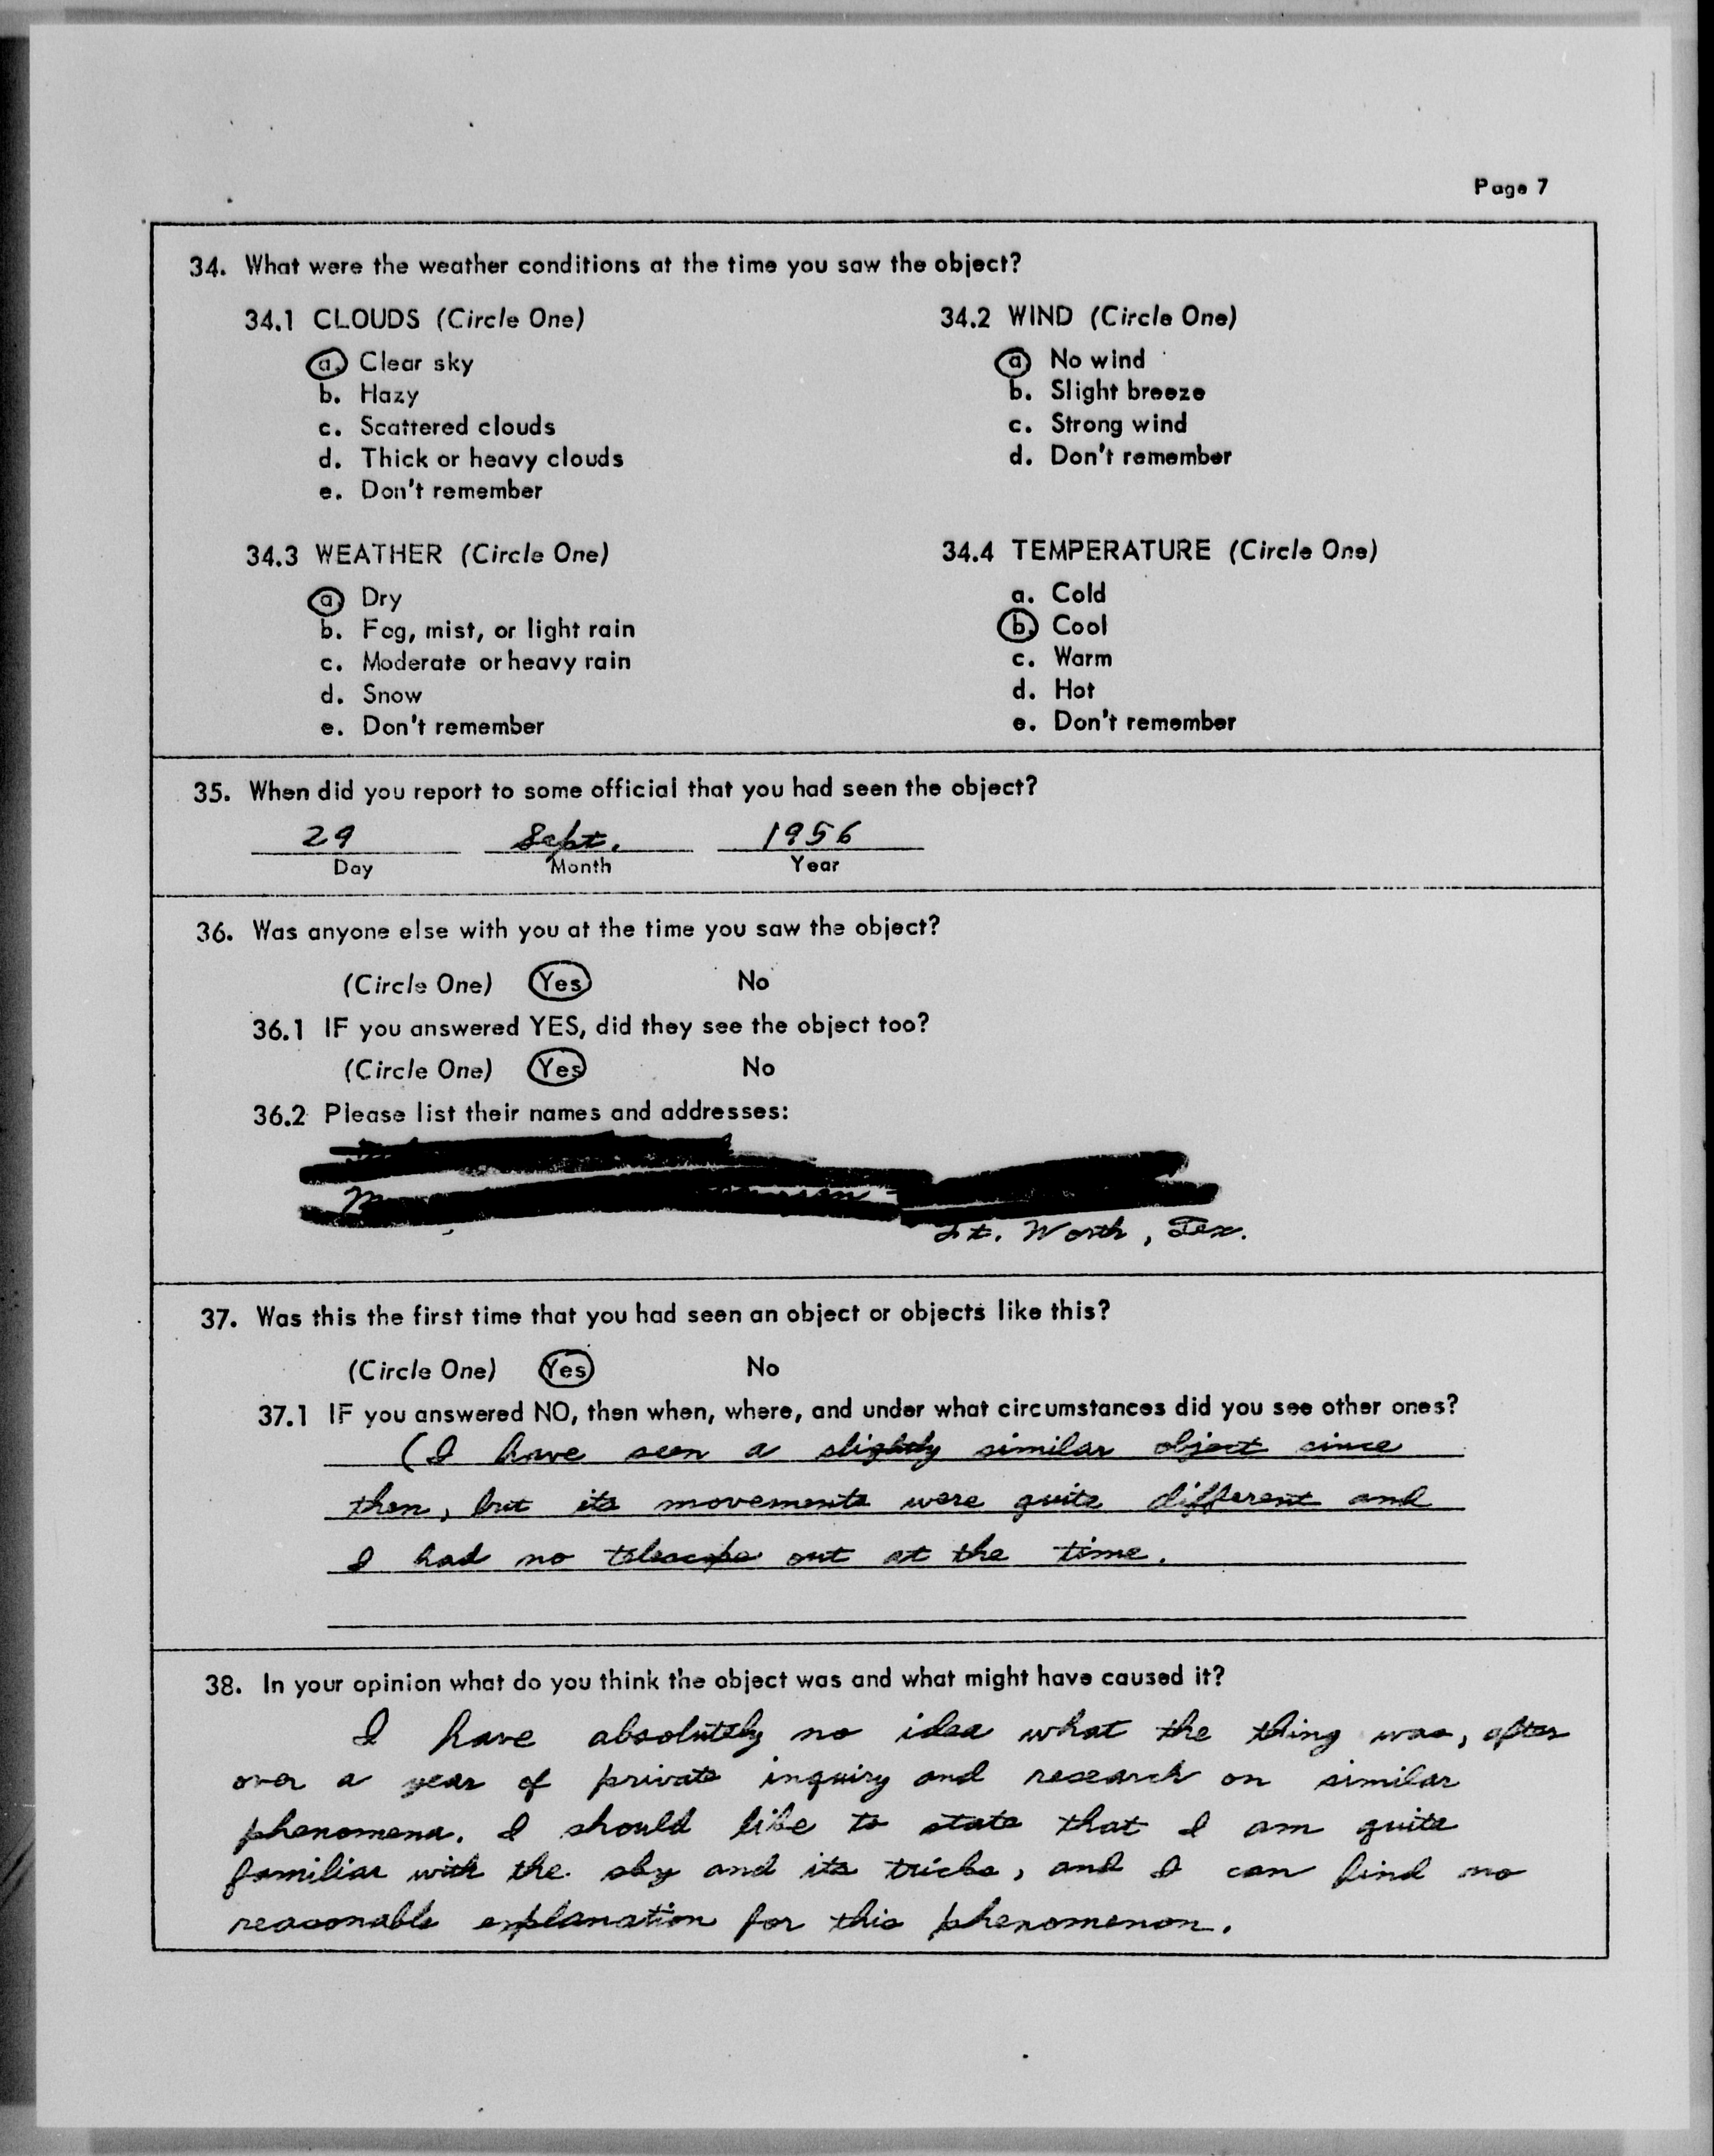 Page 7
34. What were the weather conditions at the time you saw the object?
34.1 CLOUDS (Circle One)
a. Clear sky
b. Hazy
c. Scattered clouds
d. Thick or heavy clouds
e. Don't remember
34.2 WIND (Circle One)
a. No wind
b. Slight breeze
c. Strong wind
d. Don't remember
34.3 WEATHER (Circle One)
a. Dry
b. Fog, mist, or light rain
c. Moderate or heavy rain
d. Snow
e. Don't remember
34.4 TEMPERATURE (Circle One)
a. Cold
b. Cool
c. Warm
d. Hot
e. Don't remember
35. When did you report to some official that you had seen the object?
29 Sept. 1956
Day Month Year
36. Was anyone else with you at the time you saw the object?
(Circle One) Yes No
36.1 IF you answered YES, did they see the object too?
(Circle One) Yes No
36.2 Please list their names and addresses:
Ft. Worth, Tex.
37. Was this the first time that you had seen an object or objects like this?
(Circle One) Yes No
37.1 IF you answered NO, then when, where, and under what circumstances did you see other ones?
(I have seen a slightly similar object since
then, but its movements were quite different and
I had no telescope out at the time.
38. In your opinion what do you think the object was and what might have caused it?
I have absolutely no idea what the thing was, after
over a year of private inquiry and research on similar
phenomena. I should like to state that I am quite
familiar with the sky and its tricks, and I can find no
reasonable explanation for this phenomenon.